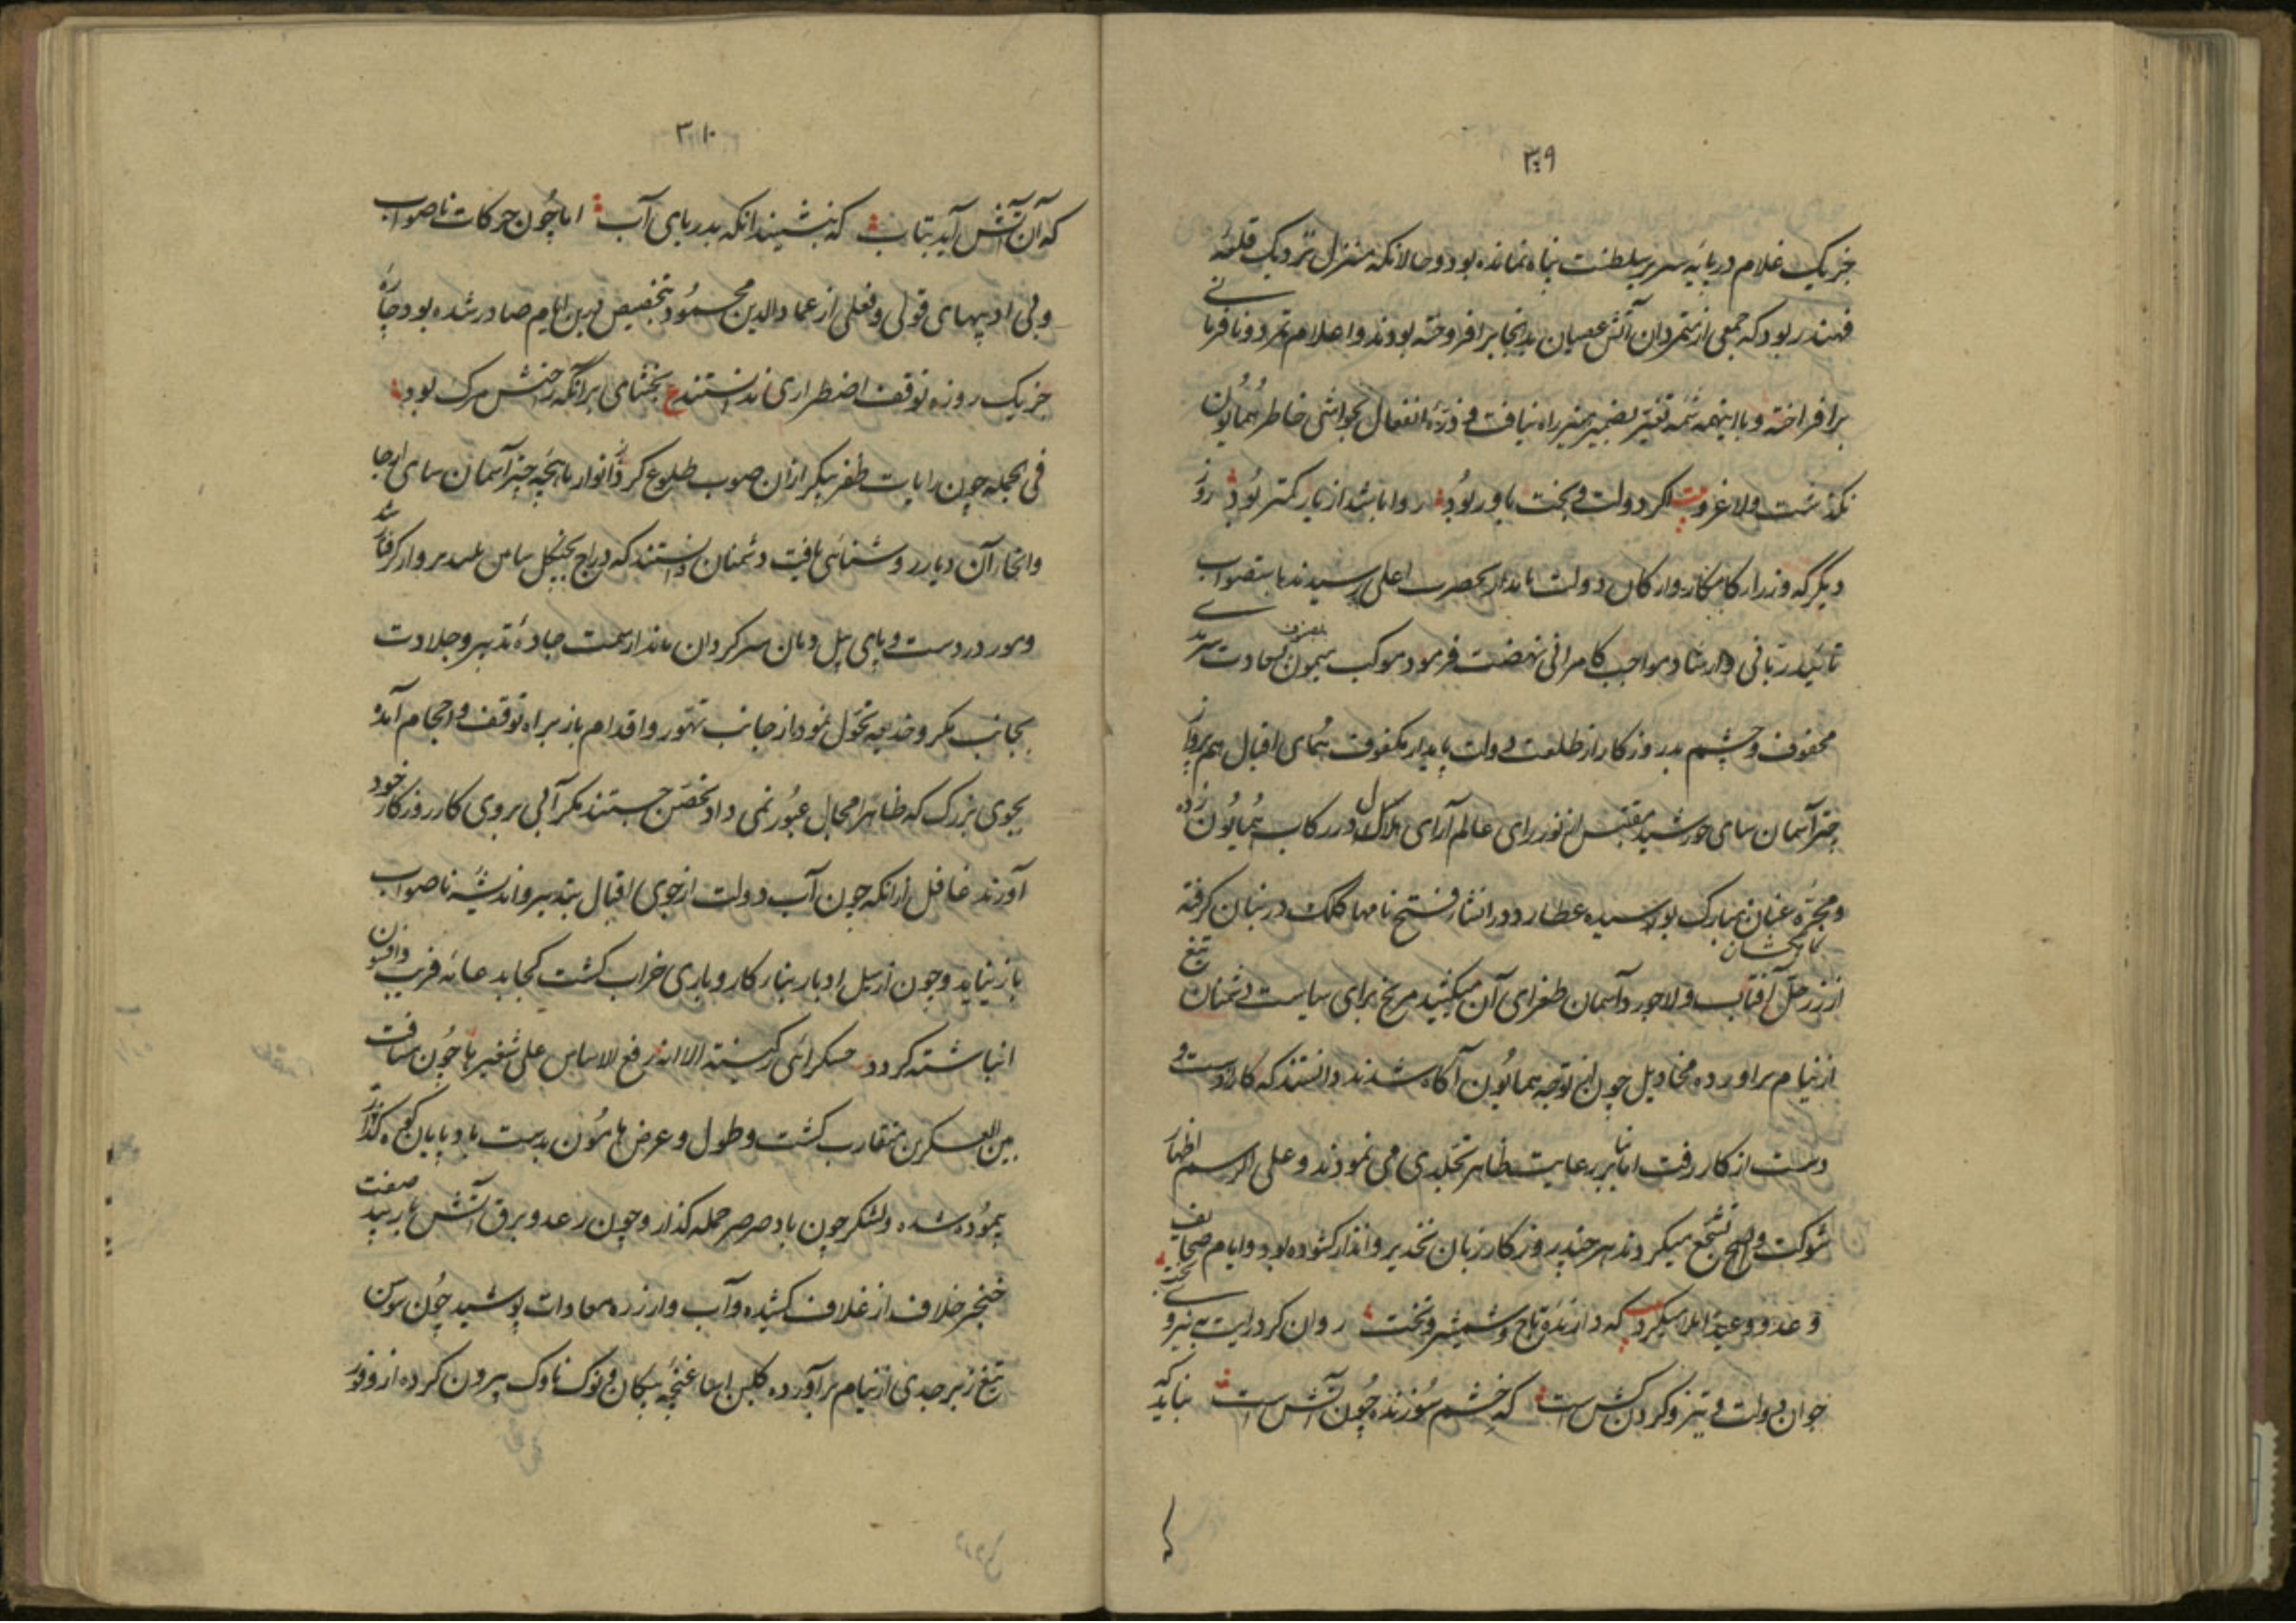 ۳۰۹
جز یک غلام در پایه سریر سلطنت پناه نمانده بود و حالانکه منزل نزدیک قلعه
قهندر بود که جمعی از متمردان آتش عصیان بدانجا برافروخته بودند و اعلام تمرد و نافرمانی
برافراخته و با اینهمه شمه تغیر بضمیر منیر راه نیافت و ذره انفعال بحواشی خاطر همایون
نگذشت ولا غرو بیت اگر دولت و بخت یاور بود روا باشد از یار کمتر بود روز
دیگر که وزراء کامکار و ارکان دولت نامدار بحضرت اعلی رسیدند باستصواب
تائید ربانی و ارشاد مواجب کامرانی نهضت فرمود موکب میمون بسعادت سرمدی
محفوف و چشم بد روزگار از طلعت دولت پایدار مکفوف همای اقبال هم پرواز
چتر آسمان سای خورشید مقتبس از نور رای عالم آرای هلال در رکاب همایون زده
و مجره عنان مبارک بوسیده عطارد در انشاء فتح نامها کلک در بنان گرفته
کاهکشان
از زر حل آفتاب و لاجورد آسمان طغرای آن میکشید مریخ برای سیاست دشمنان تیغ
از نیام برآورده مخاذیل چون از توجه همایون آگاه شدند دانستند که کار از دست و
دست از کار رفت اما بنابر رعایت ظاهر تجلدی می نمودند و علی الرسم اظهار
شوکت و تشجع میکردند هر چند روزگار زبان تحذیر و انذار کشوده بود و ایام صحایف
وعد و وعید املا میکرد که دارنده تاج و شمشیر و تخت روان کرد رایت به نیروی بخت
جوان دولت و تیز و گردن کش است که خشم سوزنده چون آتش است نباید که
۳۱۰
که آن آتش آید بتاب که ننشیند انکه بدریای آب اما چون حرکات ناصواب
و بی ادبیهای قولی و فعلی از عماد الدین محمود بتخصیص درین ایام صادر شده بود چاره
جز یک روزه توقف اضطراری ندانستند ع بخشای برانکه رختش مرک بود
فی الجمله چون رایات ظفر پیکر ازان صوب طلوع کرد و انوار ماهچه چتر آسمان سای ارجا
و انحاء آن دیار روشنائی یافت دشمنان دانستند که دراج بچنگل گرفتار شد
و مور در دست و پای پیل دمان سرگردان ماند از سمت جاده تدبیر و جلادت
بجانب مکر و خدیعه تحول نمود از جانب تهور و اقدام باز براه توقف و احجام آمده
بجوی بزرک که ظاهرا مجال عبور نمی داد تحصن جستند مکر آبی بروی کار روزگار خود
آورند غافل ازانکه چون آب دولت از جوی اقبال بتدبیر و اندیشه ناصواب
باز نیاید و چون از سیل ادبار بنار کار و باری خراب گشت فریب و افسون
انباشته کردد علی شفیر ها چون مسافت
بین العسکرین متقارب گشت و طول و عرض هامون بدست باد پایان کوه گذار
پیموده شده و لشکر چون باد صرصر حمله گذار و چون رعد و برق آتش بار صفت
خنجر خلاف از غلاف کشیده و آب وار زره معادات پوشید چون سوسن
تیغ زبرجدی از نیام برآورده کلبن غنچه پیکان و نوک ناوک بیرون کرده از وفور